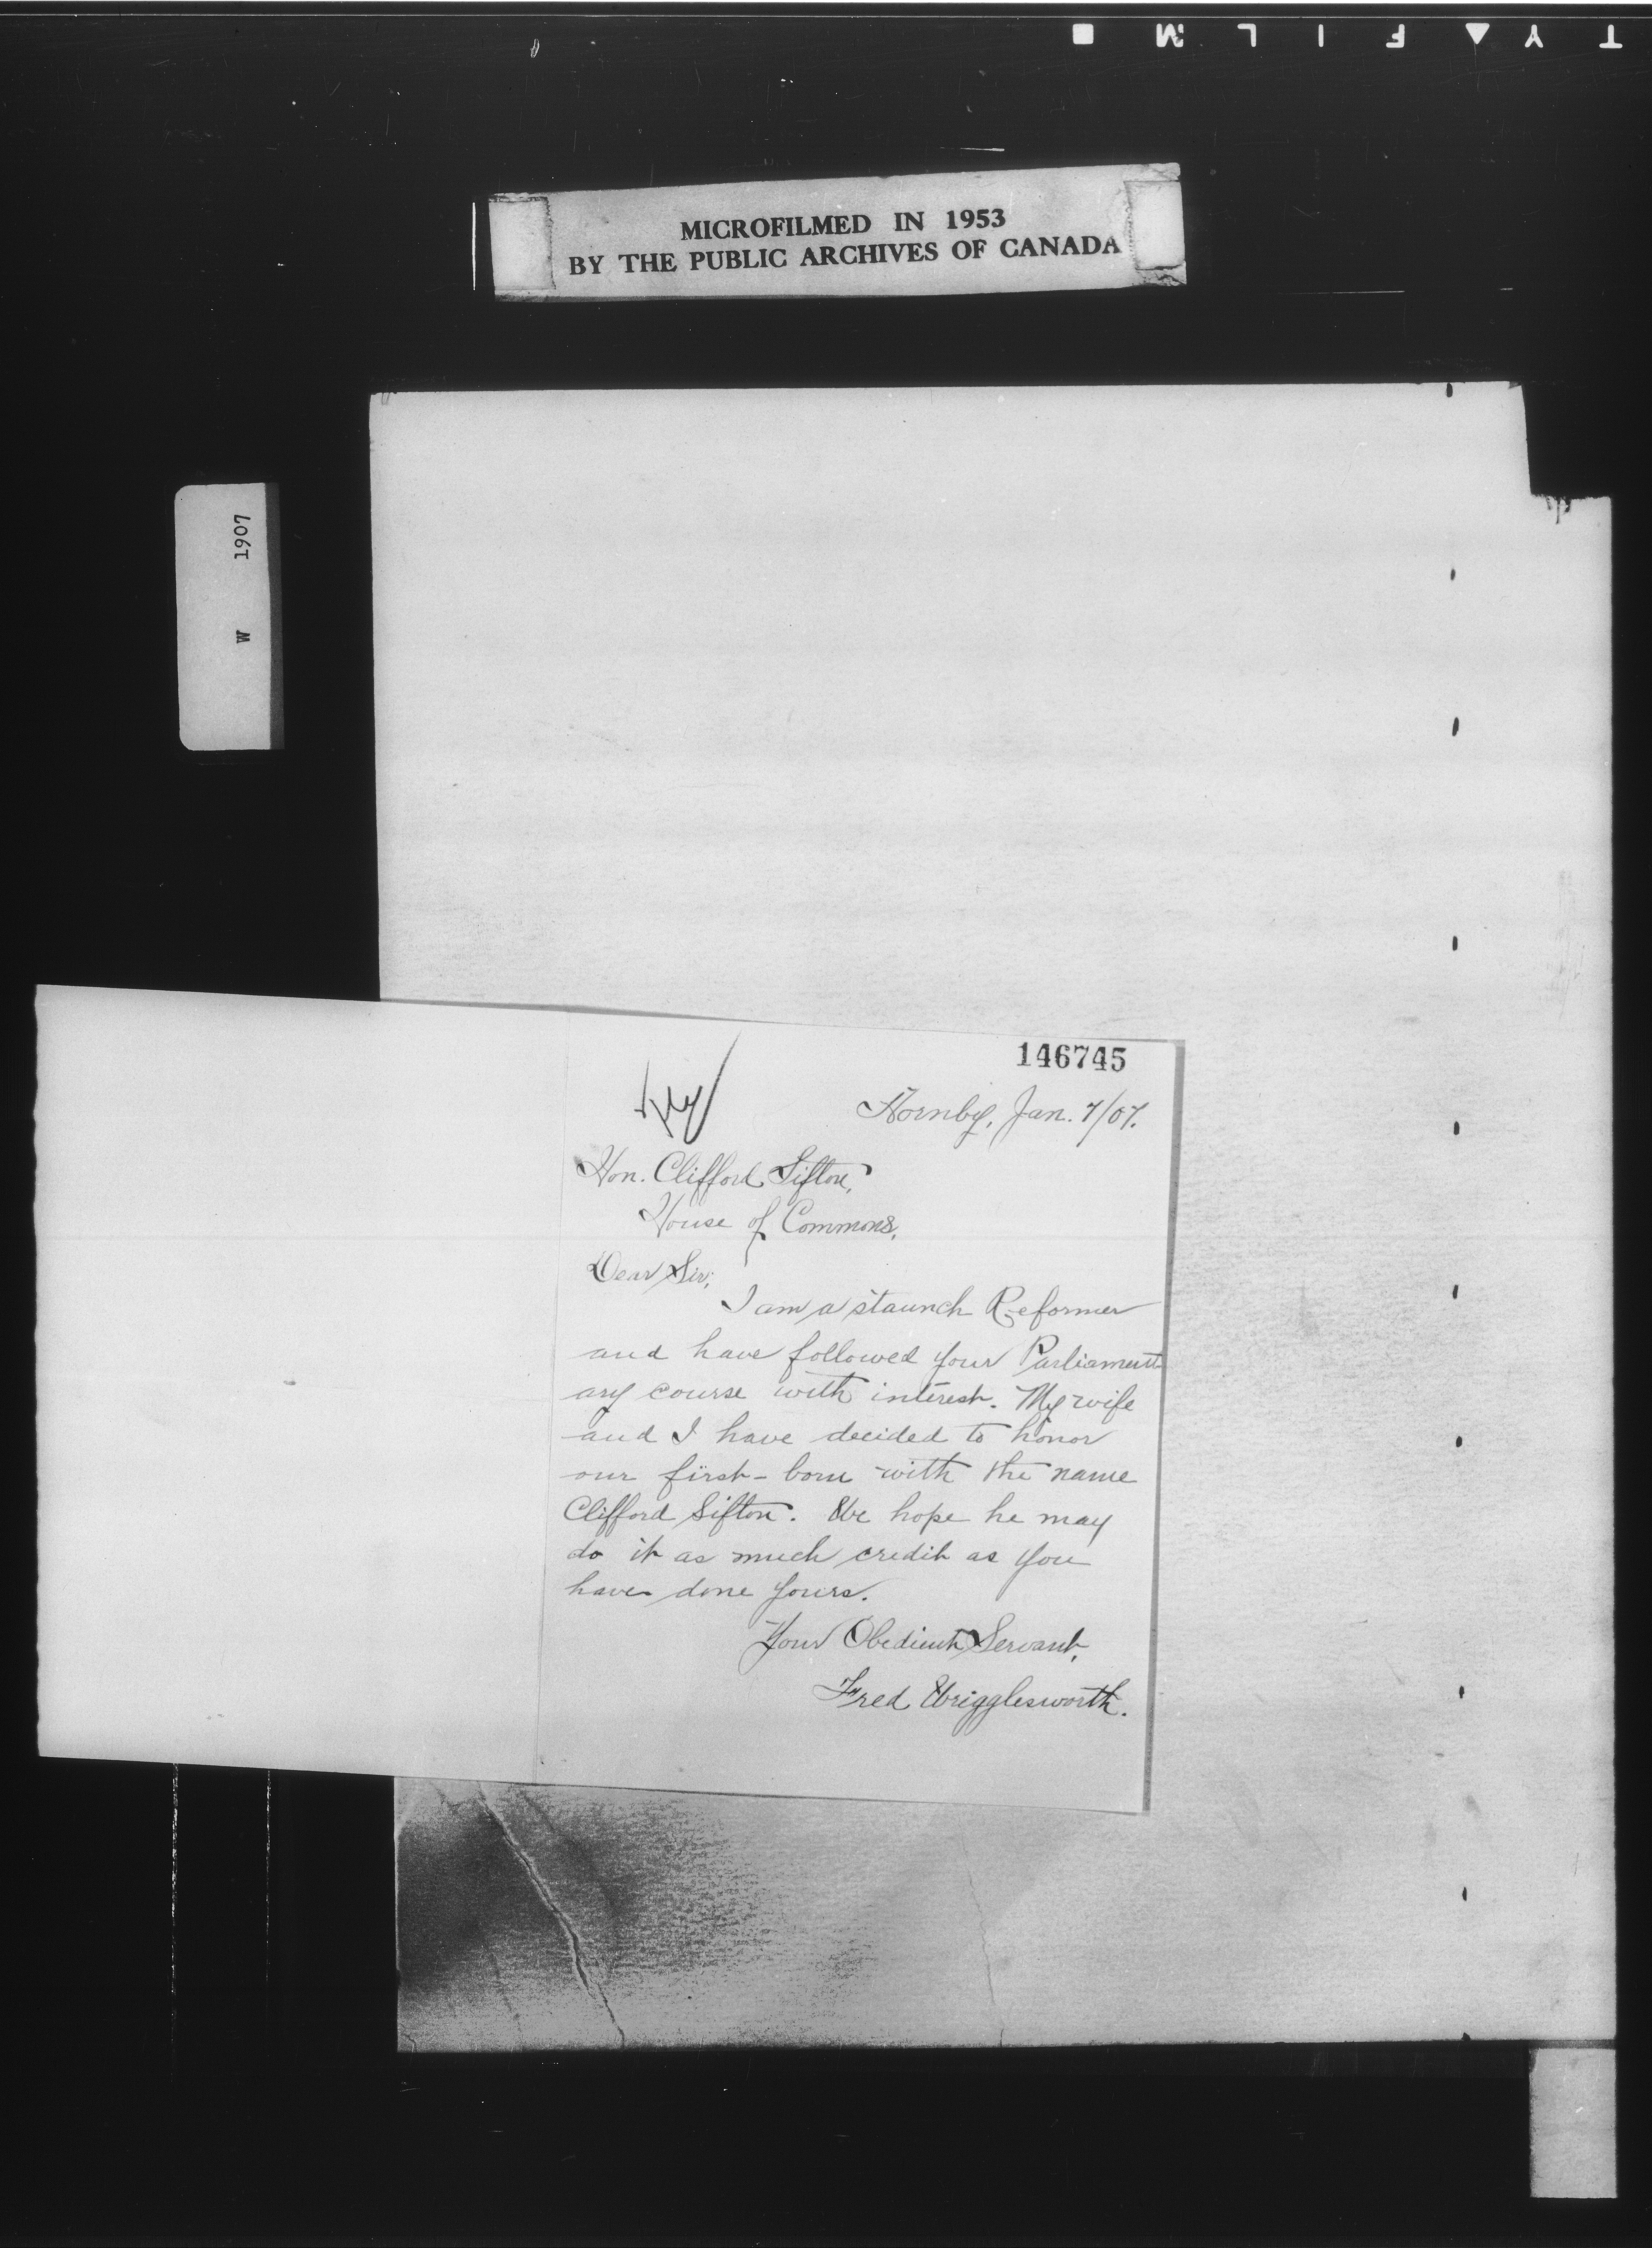 TY▲FILM■
MICROFILMED IN 1953
BY THE PUBLIC ARCHIVES OF CANADA
W 1907
146745
Hornby, Jan. 7/07.
Hon. Clifford Sifton,
House of Commons,
Dear Sir;
I am a staunch Reformer
and have followed your Parliament-
ary course with interest. My wife
and I have decided to honor
our first-born with the name
Clifford Sifton. We hope he may
do it as much credit as you
have done yours.
Your Obedient Servant,
Fred Wrigglesworth.